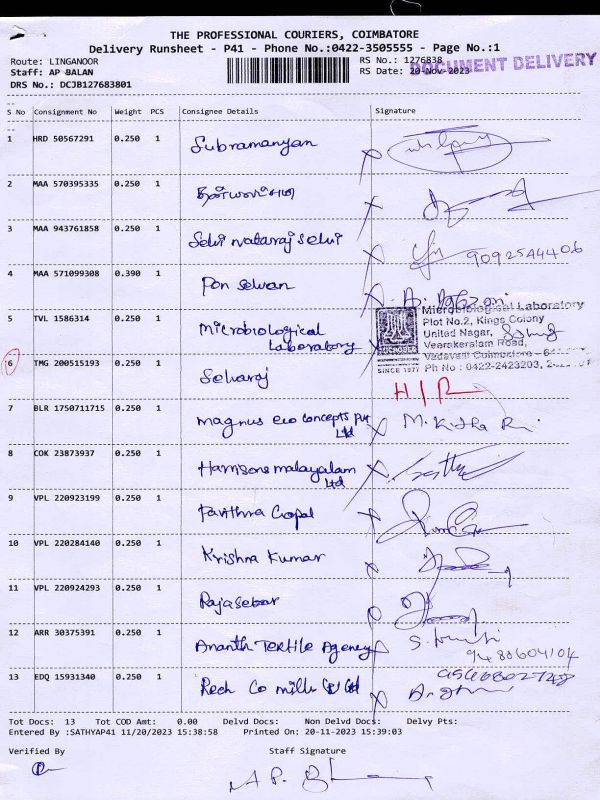 THE PROFESSIONAL COURIERS, COIMBATORE
Delivery Runsheet - P41 - Phone No.:0422-3505555 - Page No.:1
Route: LINGANOOR
Staff: AP BALAN
DRS No.: DCJB127683801
RS No.: 1276838
RS Date: 20-Nov-2023
DOCUMENT DELIVERY
S No Consignment No Weight PCS Consignee Details Signature
1 HRD 50567291 0.250 1 Subramanyan
2 MAA 570395335 0.250 1
3 MAA 943761858 0.250 1 Selvi nataraj selvi 9092544406
4 MAA 571099308 0.390 1 Pon selvan
5 TVL 1586314 0.250 1 Microbiological Laboratory
Microbiological Laboratory
Plot No.2, Kings Colony
United Nagar,
Veerakeralam Road,
Vadavalli Coimbatore -
SINCE 1977 Ph No : 0422-2423203,
6 TMG 200515193 0.250 1 Selvaraj
7 BLR 1750711715 0.250 1 Magnus evo concepts Pvt Ltd
8 COK 23873937 0.250 1 Harrisons malayalam Ltd
9 VPL 220923199 0.250 1 Pavithra Gopal
10 VPL 220284140 0.250 1 Krishna Kumar
11 VPL 220924293 0.250 1 Rajasekar
12 ARR 30375391 0.250 1 Ananth Textile Agency
13 EDQ 15931340 0.250 1
Tot Docs: 13 Tot COD Amt: 0.00 Delvd Docs: Non Delvd Docs: Delvy Pts:
Entered By :SATHYAP41 11/20/2023 15:38:58 Printed On: 20-11-2023 15:39:03
Verified By Staff Signature